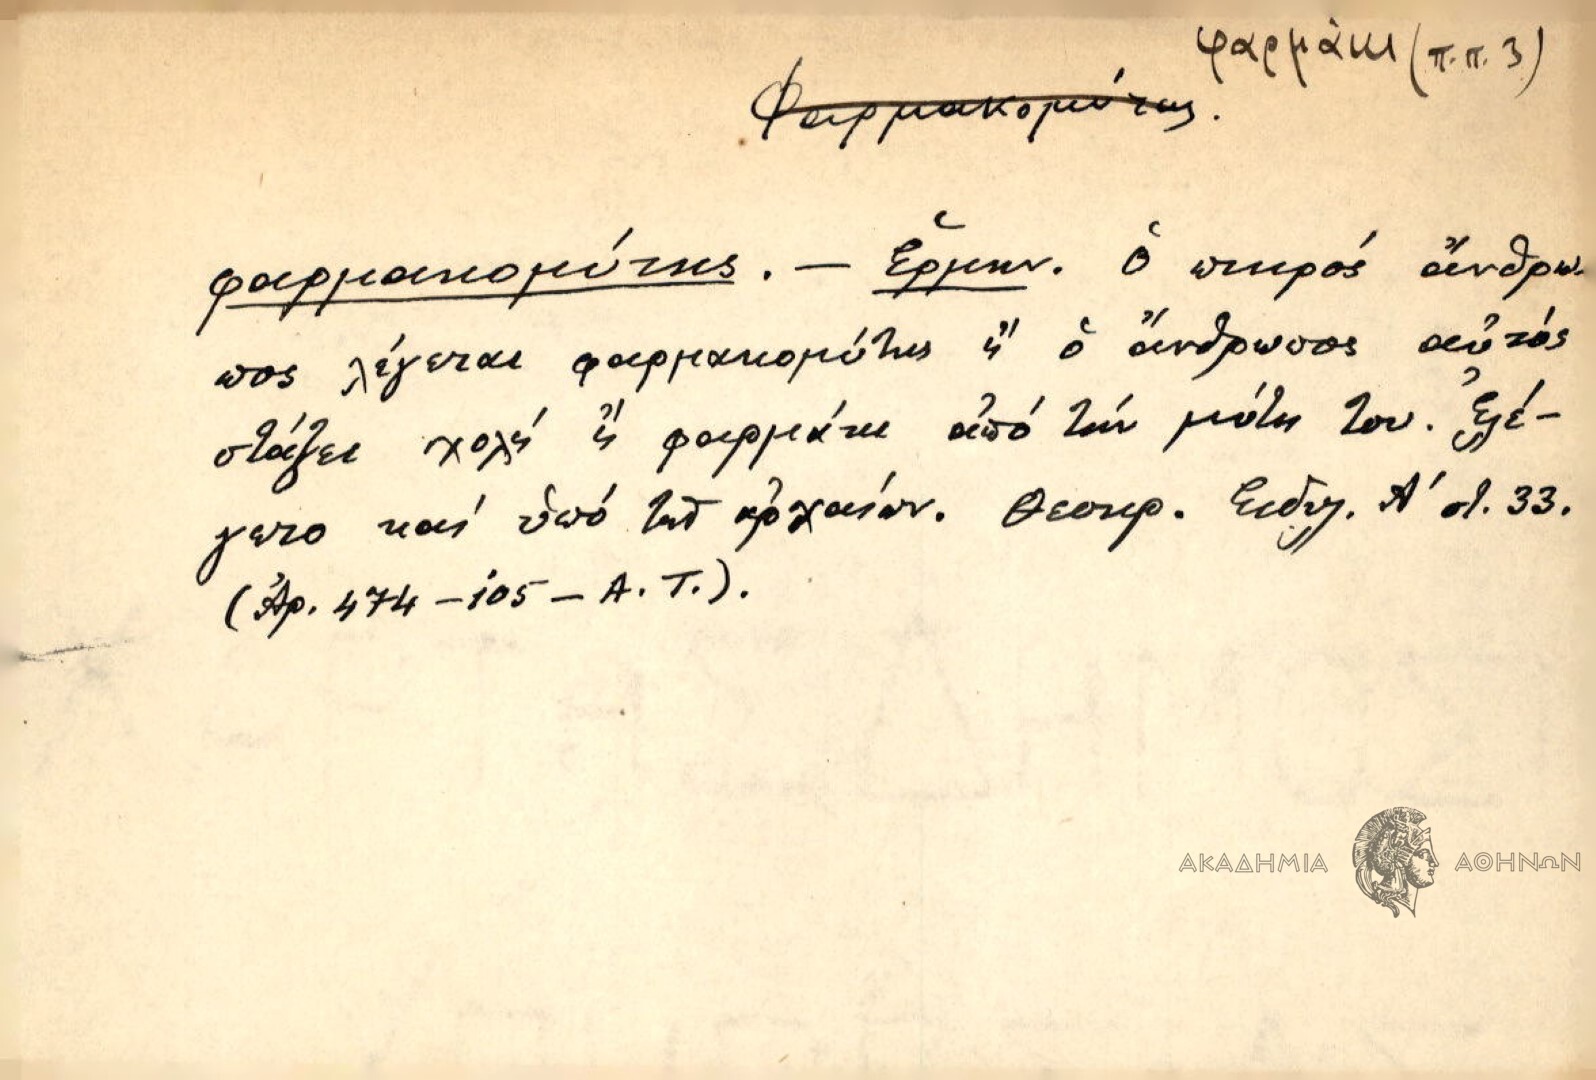 φαρμάκι (π.π. 3)
Φαρμακομύτης.
φαρμακομύτης. — Ἑρμην. Ὁ πικρός ἄνθρω-
πος λέγεται φαρμακομύτης ἤ ὁ ἄνθρωπος αὐτός
στάζει χολή ἤ φαρμάκι ἀπό τήν μύτη του. Ἐλέ-
γετο καί ὑπό τῶν ἀρχαίων. Θεοκρ. Εἰδυλ. Α΄ στ. 33.
(Ἀρ. 474 – 105 – Α. Τ.).
ΑΚΑΔΗΜΙΑ ΑΘΗΝΩΝ